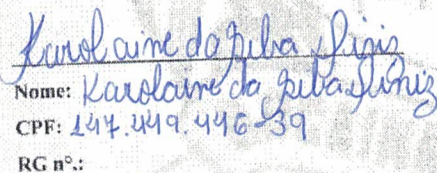 Karolaine da Silva Diniz
Nome: Karolaine da Silva Diniz
CPF: 147.449.446-39
RG nº.: